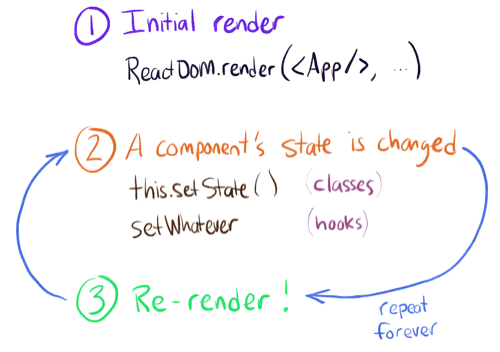 1 Initial render
ReactDOM.render(<App/>, ...)
2 A component's state is changed
this.setState() (classes)
setWhatever (hooks)
3 Re-render!
repeat
forever